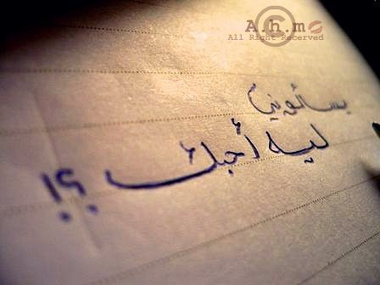 A.h.m
All Right Reserved
يسألوني
ليه أحبك ؟!